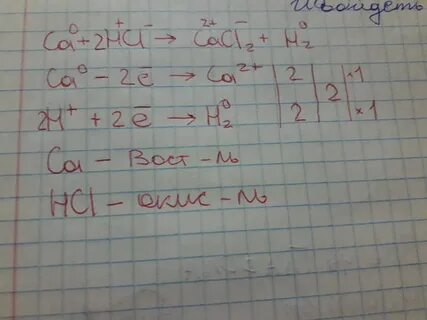 Ca⁰ + 2H⁺Cl⁻ → Ca²⁺Cl⁻₂ + H⁰₂
Ca⁰ − 2ē → Ca²⁺ | 2 | 2 | ·1
2H⁺ + 2ē → H⁰₂ | 2 | | ×1
Ca – Вост – ль
HCl – окис – ль